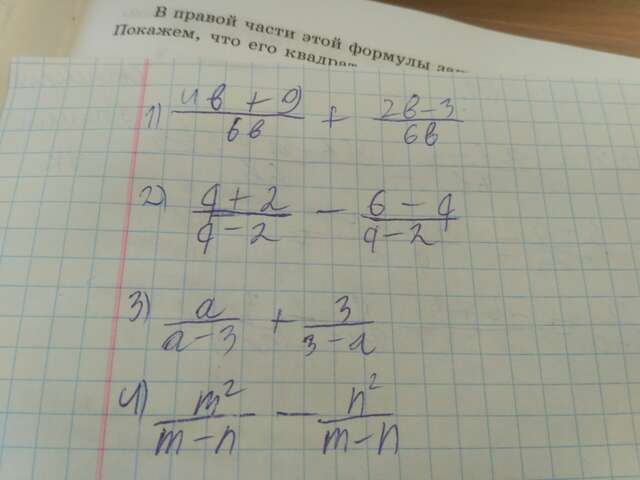 В правой части этой формулы за
Покажем, что его квадрат
1) (4в + 9)/(6в) + (2в-3)/(6в)
2) (q + 2)/(q - 2) - (6 - q)/(q - 2)
3) a/(a - 3) + 3/(3 - a)
4) m²/(m - n) - n²/(m - n)